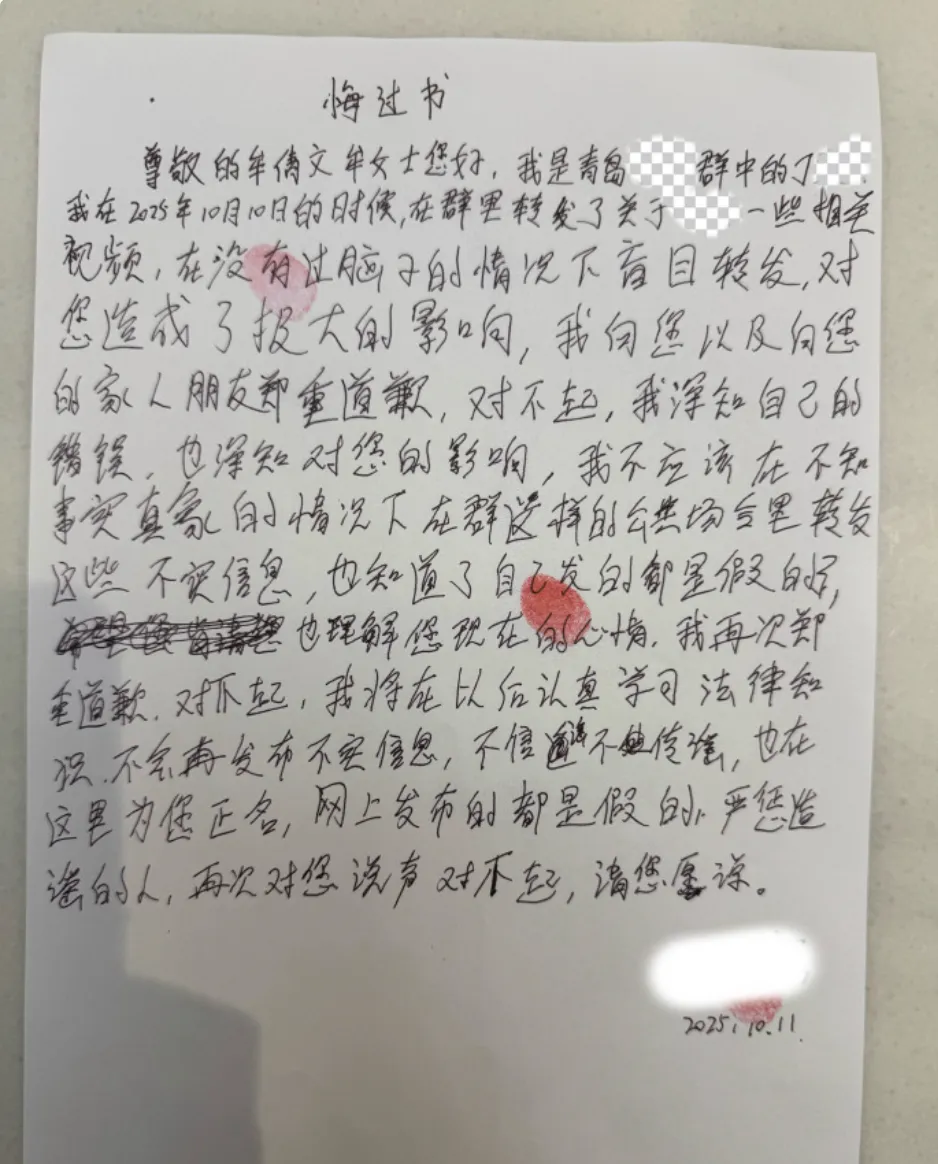 悔过书
尊敬的牟倩文牟女士您好，我是青岛 群中的丁
我在2025年10月10日的时候，在群里转发了关于 一些相关
视频，在没有过脑子的情况下盲目转发，对
您造成了极大的影响，我向您以及向您
的家人朋友郑重道歉，对不起，我深知自己的
错误，也深知对您的影响，我不应该在不知
事实真象的情况下在群这样的公共场合里转发
这些不实信息，也知道了自己发的都是假的，
也理解您现在的心情。我再次郑
重道歉，对不起，我将在以后认真学习法律知
识，不会再发布不实信息，不信谣不传谣，也在
这里为您正名，网上发布的都是假的，严惩造
谣的人，再次对您说声对不起，请您原谅。
2025.10.11.